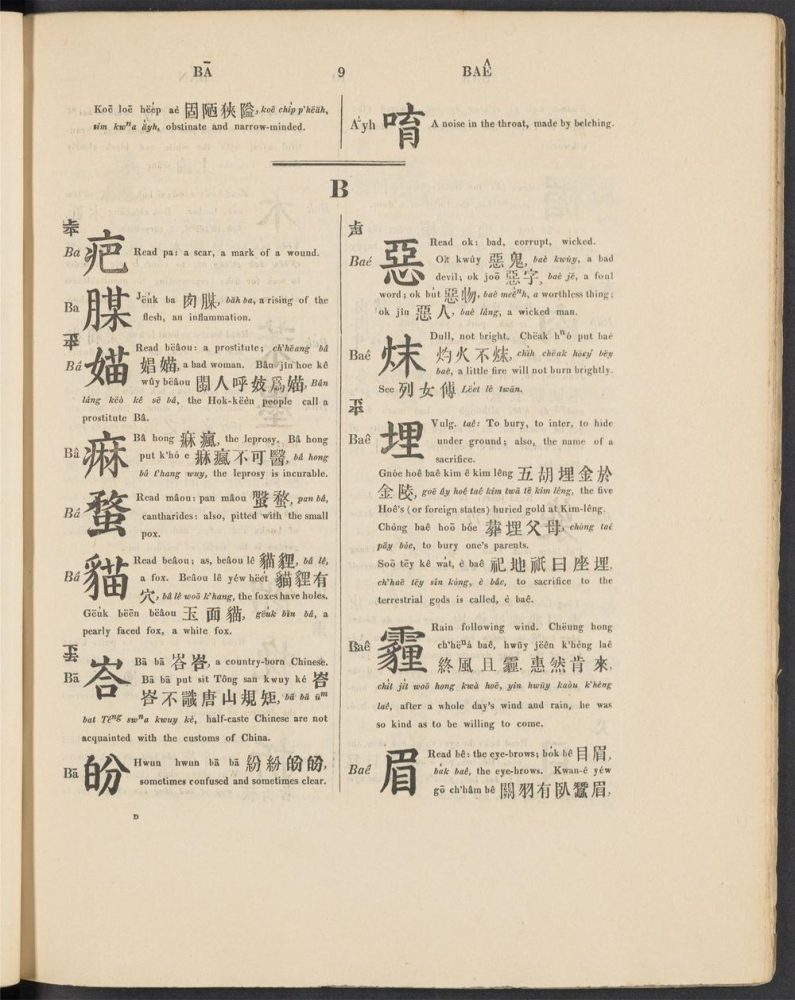 BĀ 9 BAÊ
Koē loē hëep aè 固陋狹隘, koê chip p'hëäh,
sim kwⁿa äyh, obstinate and narrow-minded.
A'yh 喐 A noise in the throat, made by belching.
B
Ba 疤 Read pa: a scar, a mark of a wound.
Ba 腜 Jëuk ba 肉腜, bäh ba, a rising of the
flesh, an inflammation.
Bâ 媌 Read bëâou: a prostitute; ch'hëang bâ
娼媌, a bad woman. Bân jîn hoe kê
wûy bëâou 閩人呼妓爲媌, Bân
lâng këò kê sē bâ, the Hok-këèn people call a
prostitute Bâ.
Bâ 痳 Bâ hong 痳瘋, the leprosy. Bâ hong
put k'hó e 痳瘋不可醫, bâ hong
bô t'hang wuy, the leprosy is incurable.
Bâ 蝥 Read mâou: pan mâou 螌蝥, pan bâ,
cantharides: also, pitted with the small
pox.
Bâ 貓 Read beâou; as, beâou lê 貓貍, bâ lê,
a fox. Beâou lê yéw hëet 貓貍有
穴, bâ lê woō k'hang, the foxes have holes.
Gëuk bëēn bëâou 玉面貓, gëuk bīn bâ, a
pearly faced fox, a white fox.
Bā 峇 Bā bā 峇峇, a country-born Chinese.
Bā bā put sit Tông san kwuy ké 峇
峇不識唐山規矩, bā bā ūᵐ
bat Têⁿᵍ swⁿa kwuy ké, half-caste Chinese are not
acquainted with the customs of China.
Bā 皊 Hwun hwun bā bā 紛紛皊皊,
sometimes confused and sometimes clear.
D
Baé 惡 Read ok: bad, corrupt, wicked.
Ok kwúy 惡鬼, baé kwúy, a bad
devil; ok joō 惡字, baé jē, a foul
word; ok but 惡物, baé meēⁿh, a worthless thing:
ok jîn 惡人, baé lâng, a wicked man.
Baé 烌 Dull, not bright. Chëak hⁿó put baé
灼火不烌, chih chëak hoéy bēy
baé, a little fire will not burn brightly.
See 列女傳 Lëet lé twān.
Baê 埋 Vulg. taê: To bury, to inter, to hide
under ground; also, the name of a
sacrifice.
Gnóe hoê baê kim ê kim lêng 五胡埋金於
金陵, goē ây hoê taê kim twā tē kim lêng, the five
Hoê's (or foreign states) buried gold at Kim-lêng.
Chòng baê hoō bóe 葬埋父母, chòng taê
pāy bóe, to bury one's parents.
Soō tēy kê wat, è baê 祀地祇曰座埋,
ch'haē tēy sîn kóng, è bâe, to sacrifice to the
terrestrial gods is called, è baê.
Baê 霾 Rain following wind. Chëung hong
ch'hëⁿá baê, hwūy jëên k'héng laê
終風且霾, 惠然肯來,
chit jit woō hong kwà hoē, yin hwūy kaòu k'héng
laê, after a whole day's wind and rain, he was
so kind as to be willing to come.
Baê 眉 Read bê: the eye-brows; bok bê 目眉,
bak baê, the eye-brows. Kwan-é yéw
gō ch'hâm bê 關羽有臥蠶眉,